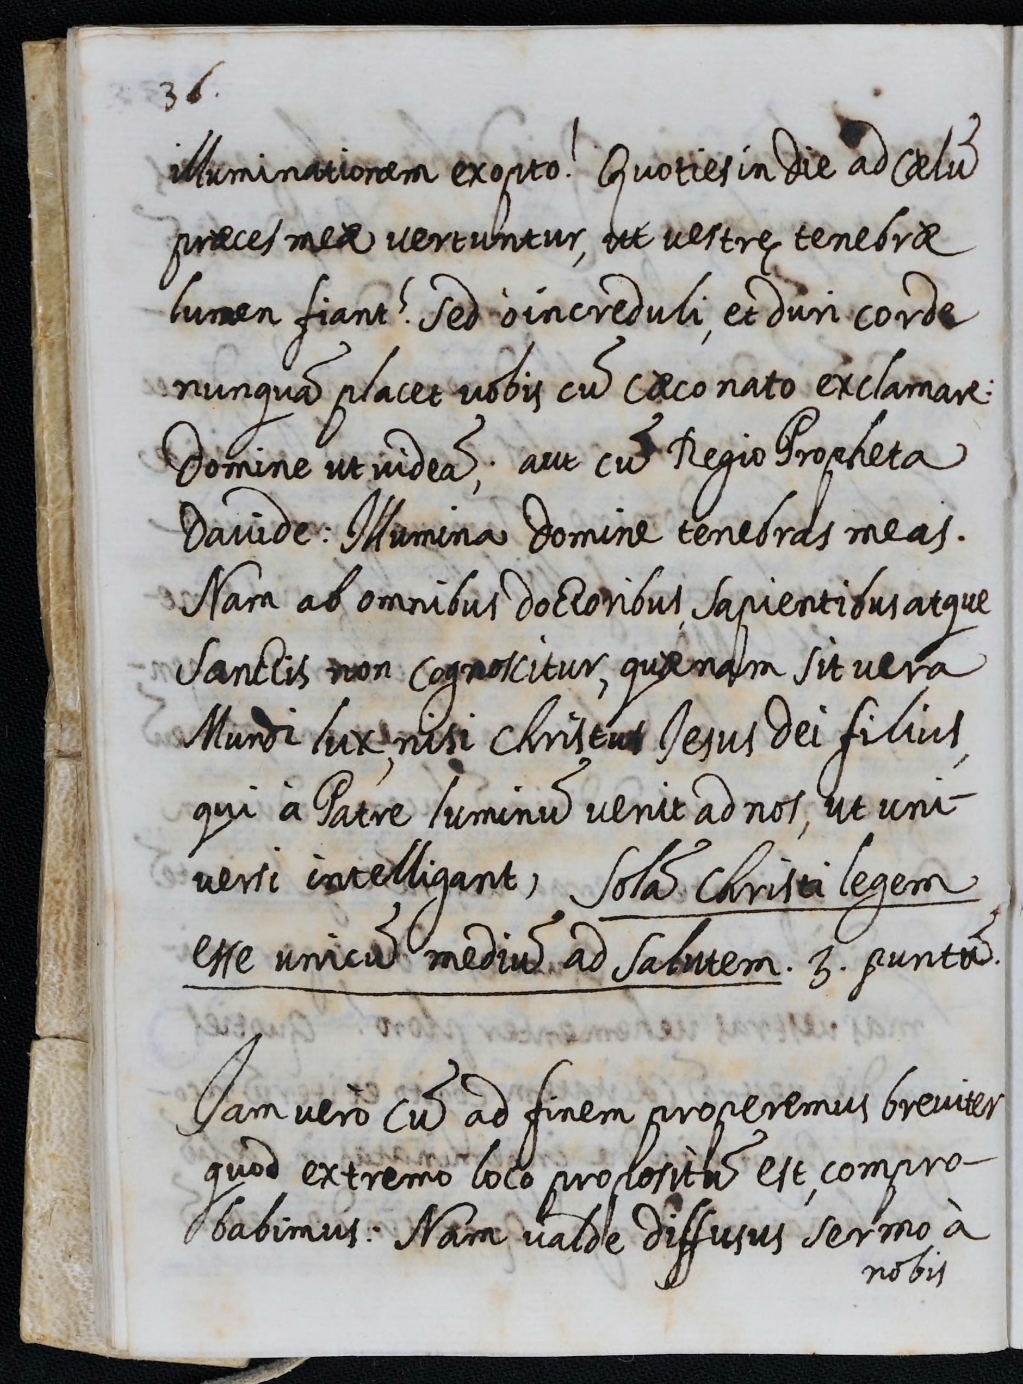 36.
illuminationem exopto! Quoties in die ad Cælũ
præces meæ vertuntur, ut vestrę tenebræ
lumen fiant! Sed ò increduli, et duri corde
nunquã placet vobis cũ Cæco nato exclamare:
Domine ut videã; aut cũ Regio Propheta
Davide: Illumina Domine tenebras meas.
Nam ab omnibus doctoribus, Sapientibus atque
Sanctis non cognoscitur, quænam sit vera
Mundi lux, nisi Christus Jesus dei filius,
qui à Patre luminũ venit ad nos, ut uni-
versi intelligant, Solã Christi legem
esse unicũ mediũ ad Salutem. 3. puntũ.
Jam verò cũ ad finem properemus breviter
quod extremo loco propositũ est, compro-
babimus: Nam valde diffusus sermo à
nobis